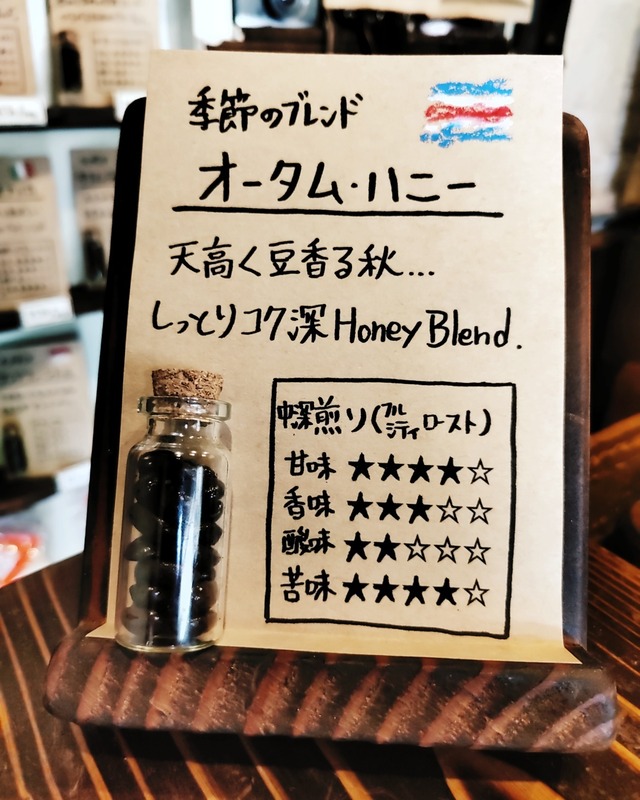 季節のブレンド
オータム・ハニー
天高く豆香る秋...
しっとりコク深Honey Blend.
中深煎り(フルシティロースト)
甘味 ★★★★☆
香味 ★★★☆☆
酸味 ★★☆☆☆
苦味 ★★★★☆